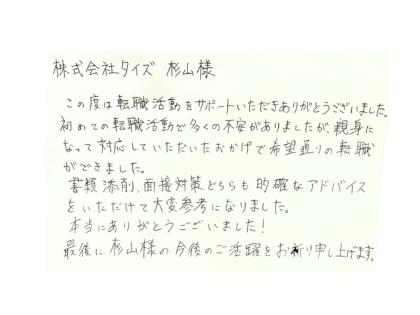 株式会社タイズ 杉山様
この度は転職活動をサポートいただきありがとうございました。
初めての転職活動で多くの不安がありましたが、親身に
なって対応していただいたおかげで希望通りの転職
ができました。
書類添削、面接対策どちらも的確なアドバイス
をいただけて大変参考になりました。
本当にありがとうございました!
最後に、杉山様の今後のご活躍をお祈り申し上げます。